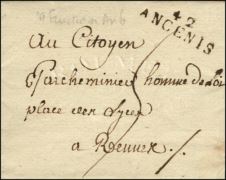 42
ANCENIS
Au Citoyen
Parcheminier homme de loi
place des Lyces
a Rennes